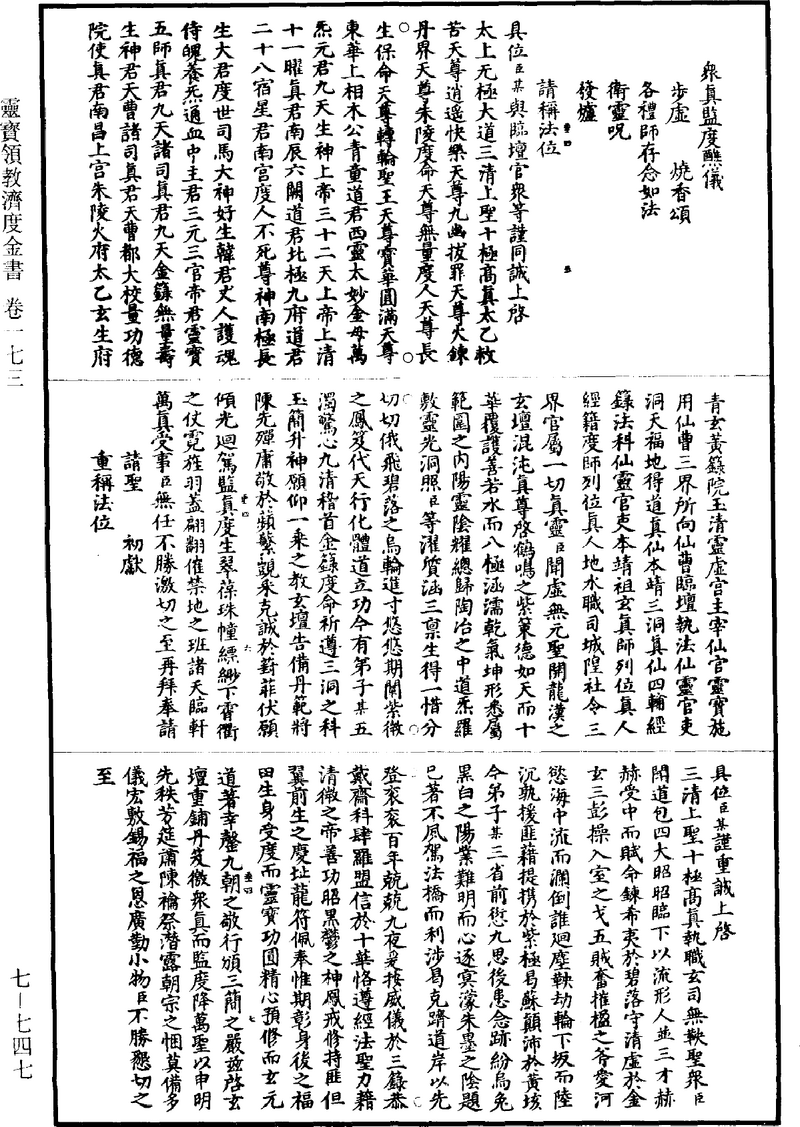 衆真監度醮儀
步虛　燒香頌
各禮師存念如法
衛靈呪
發爐
請稱法位
具位臣某與臨壇官衆等謹同誠上啓
太上无極大道三清上聖十極高真太乙救
苦天尊逍遙快樂天尊九幽拔罪天尊火鍊
丹界天尊朱陵度命天尊無量度人天尊長
生保命天尊轉輪聖王天尊寶華圓滿天尊
東華上相木公青童道君西靈太妙金母萬
炁元君九天生神上帝三十二天上帝上清
十一曜真君南辰六闕道君北極九府道君
二十八宿星君南宮度人不死尊神南極長
生大君度世司馬大神好生韓君丈人護魂
侍魄養炁通血中主君三元三官帝君靈寶
五師真君九天諸司真君九天金籙無量壽
生神君天曹諸司真君天曹都大校量功德
院使真君南昌上宮朱陵火府太乙玄生府
青玄黃籙院玉清靈虛宮主宰仙官靈寶施
用仙曹三界所向仙曹臨壇執法仙靈官吏
洞天福地得道真仙本靖三洞真仙四輪經
籙法科仙靈官吏本靖祖玄真師列位真人
經籍度師列位真人地水職司城隍社令三
界官屬一切真靈臣聞虛無元聖開龍漢之
玄壇混沌真尊啓鶴鳴之紫策德如天而十
華覆護善若水而八極涵濡乾氣坤形悉屬
範圍之內陽靈陰耀總歸陶冶之中道炁羅
敷靈光洞照臣等濯質涵三禀生得一惜分
切切俄飛碧落之烏輪進寸悠悠期開紫微
之鳳笈代天行化體道立功今有弟子某五
濁驚心九清稽首金籙度命祈遵三洞之科
玉簡升神願仰一乘之教玄壇告備丹範將
陳先殫肅敬於蘋蘩覬采克誠於葑菲伏願
傾光迴駕監真度生翠葆珠幢縹緲下霄衢
之仗霓旌羽蓋翩翻催禁地之班諸天臨軒
萬真受事臣無任不勝激切之至再拜奉請
請聖　初獻
重稱法位
具位臣某謹重誠上啓
三清上聖十極高真執職玄司無鞅聖衆臣
聞道包四大昭昭臨下以流形人並三才赫
赫受中而賦命鍊希夷於碧落守清虛於金
玄三彭操入室之戈五賊奮摧楹之斧愛河
慾海中流而瀾倒誰迴塵鞅劫輪下坂而陸
沉孰援匪藉提携於紫極曷蘇顛沛於黃垓
今弟子某三省前愆九思後患念跡紛烏兔
黑白之陽業難明而心逐冥濛朱墨之陰題
已著不夙駕法橋而利涉曷克躋道岸以先
登衮衮百年兢兢九夜爰按威儀於三籙恭
戴齋科肆羅盟信於十華恪遵經法聖力籍
清微之帝善功昭黑鬱之神鳳戒修持匪但
翼前生之慶址龍符佩奉惟期彰身後之福
田生身受度而靈寶功圓精心預修而玄元
道著幸罄九朝之敬行頒三簡之嚴玆啓玄
壇重鋪丹笈徼衆真而監度降萬聖以申明
先秩芳筵肅陳禴祭潛露朝宗之悃莫備多
儀宏敷錫福之恩廣勤小物臣不勝懇切之
至
靈寶領教濟度金書　卷一七三
七―七四七